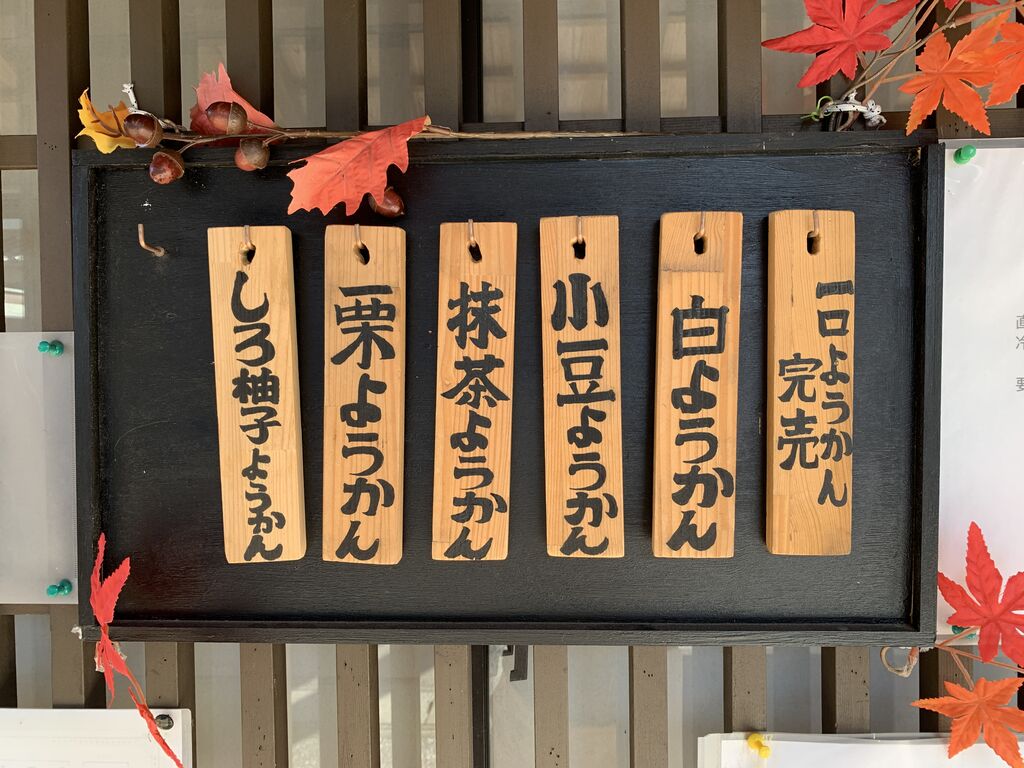 一口ようかん
完売
白ようかん
小豆ようかん
抹茶ようかん
栗ようかん
しろ柚子ようかん
直
冷
要